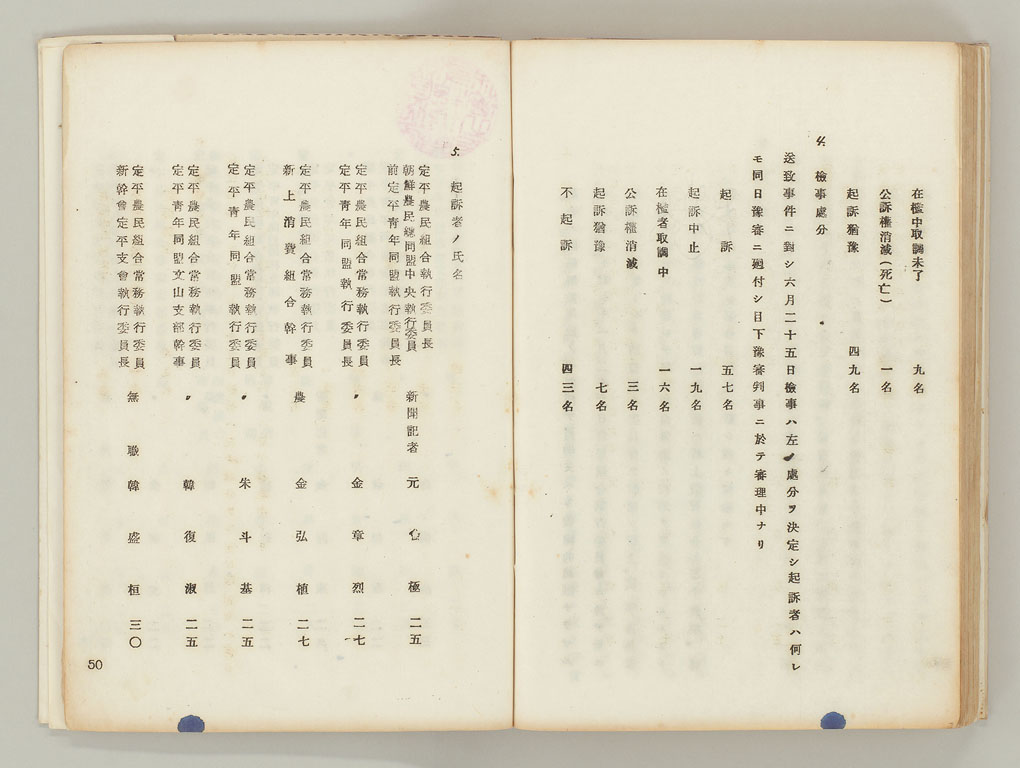 在檻中取調未了 九名
公訴權消滅(死亡) 一名
起訴猶豫 四九名
4. 檢事處分
送致事件ニ對シ六月二十五日檢事ハ左ノ處分ヲ決定シ起訴者ハ何レ
モ同日豫審ニ廻付シ目下豫審判事ニ於テ審理中ナリ
起訴 五七名
起訴中止 一九名
在檻者取調中 一六名
公訴權消滅 三名
起訴猶豫 七名
不起訴 四三名
5. 起訴者ノ氏名
定平農民組合執行委員長
朝鮮農民總同盟中央執行委員
前定平青年同盟執行委員長 新聞記者 元 極 二五
定平農民組合常務執行委員
定平青年同盟執行委員長 〃 金章烈 二七
定平農民組合常務執行委員
新上消費組合幹事 農 金弘植 二七
定平農民組合常務執行委員
定平青年同盟執行委員 〃 朱斗基 二五
定平農民組合常務執行委員
定平青年同盟文山支部幹事 〃 韓復淑 二五
定平農民組合常務執行委員
新幹會定平支會執行委員長 無職 韓盛桓 三〇
50